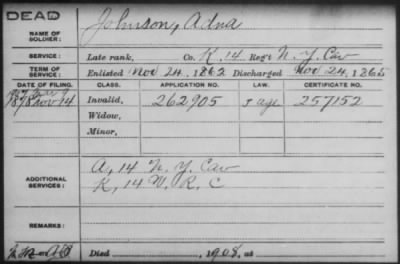 DEAD
NAME OF SOLDIER: Johnson, Adna
SERVICE: Late rank, Co. K, 14 Reg't N. Y. Cav
TERM OF SERVICE: Enlisted Nov 24, 1862 Discharged Nov 24, 1865
DATE OF FILING. CLASS. APPLICATION NO. LAW. CERTIFICATE NO.
Nov 14 Invalid, 262905 Age 257152
Widow,
Minor,
ADDITIONAL SERVICES: A, 14 N. Y. Cav
K, 14 V. R. C
REMARKS:
Died , 1908, at